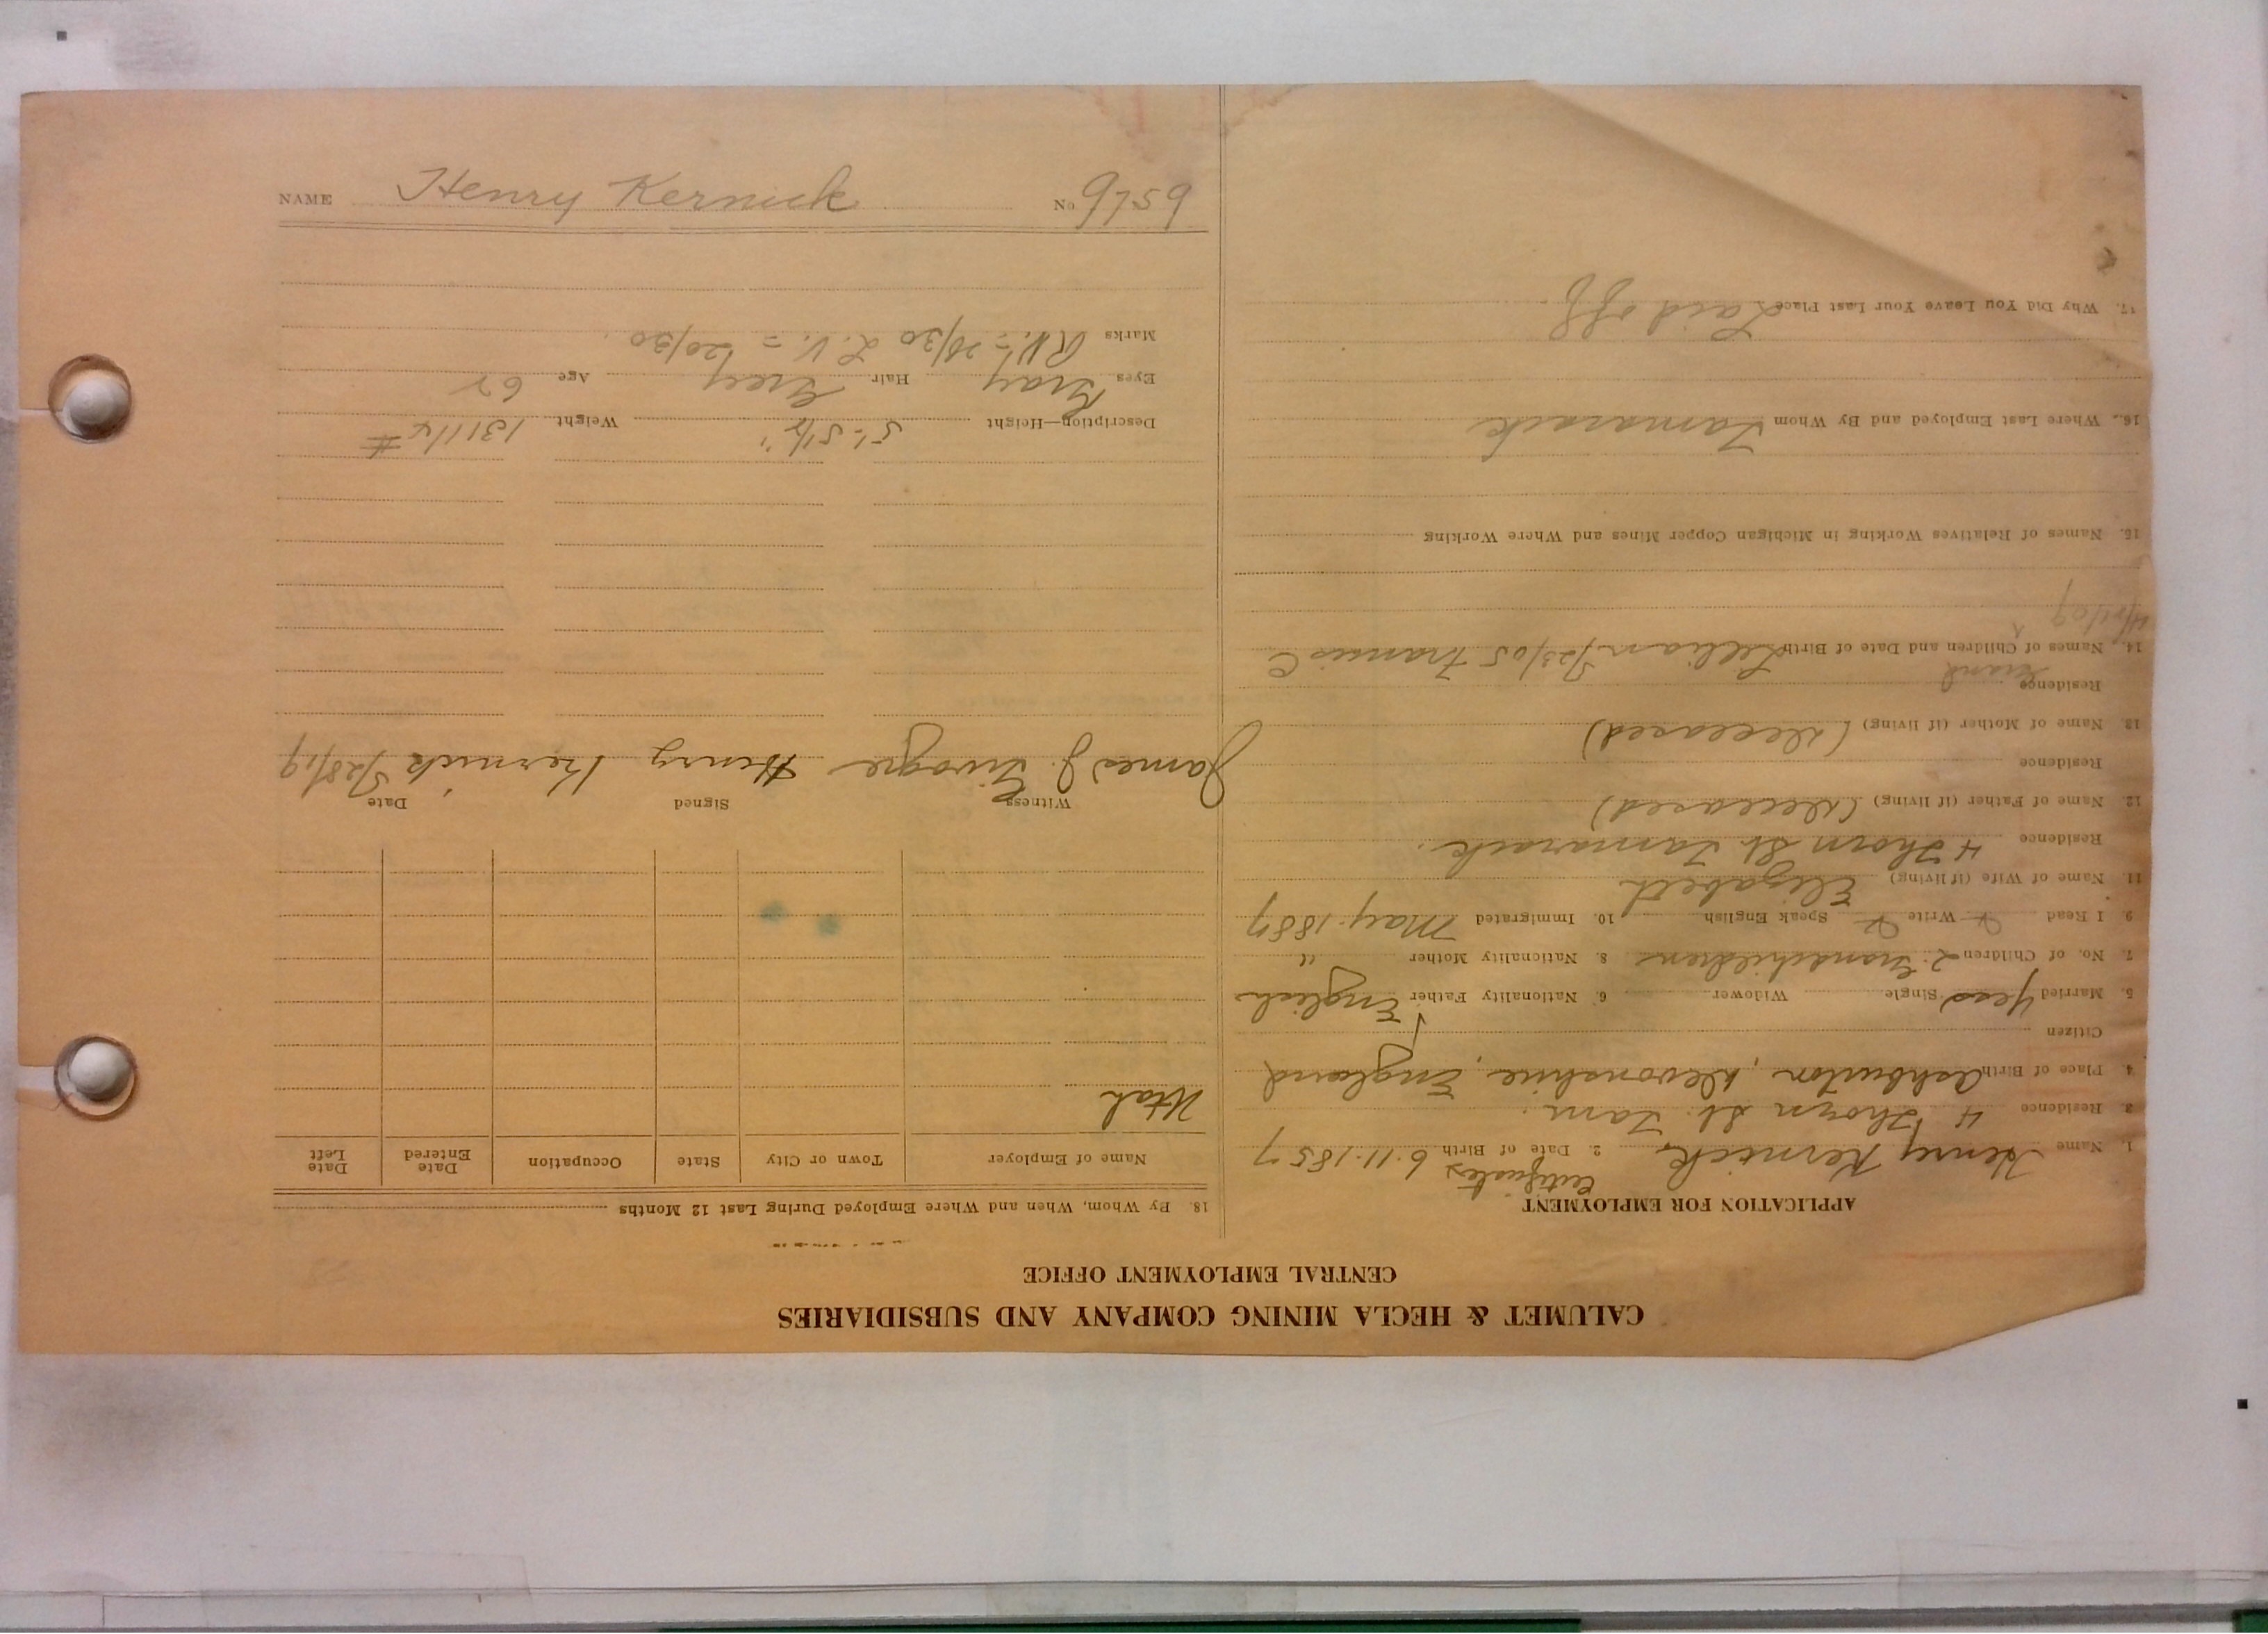 CALUMET & HECLA MINING COMPANY AND SUBSIDIARIES
CENTRAL EMPLOYMENT OFFICE
APPLICATION FOR EMPLOYMENT
Certificates
1. Name Henry Kernick 2. Date of Birth 6-11-1857
3. Residence 4 Thorn St. Tam.
4. Place of Birth Ashburton, Devonshire, England
Citizen
5. Married Yes Single Widower 6. Nationality Father English
7. No. of Children 2 Grandchildren 8. Nationality Mother "
9. I Read Write Speak English 10. Immigrated May-1887
11. Name of Wife (if living) Elizabeth
Residence 4 Thorn St. Tamarack.
12. Name of Father (if living) (Deceased)
Residence
13. Name of Mother (if living) (Deceased)
Residence
Grand
14. Names of Children and Date of Birth Lillian 5/23/05 Francis C
15. Names of Relatives Working in Michigan Copper Mines and Where Working
16. Where Last Employed and By Whom Tamarack
17. Why Did You Leave Your Last Place Laid off
18. By Whom, When and Where Employed During Last 12 Months
Name of Employer Town or City State Occupation Date Entered Date Left
Utah
Witness Signed Date
James J. Henry Kernick 5/28/19
Description—Height 5'-5 1/2" Weight 131 1/4 #
Eyes Gray Hair Grey Age 62
Marks R.V. = 20/30 L.V. = 20/30
NAME Henry Kernick No 9759